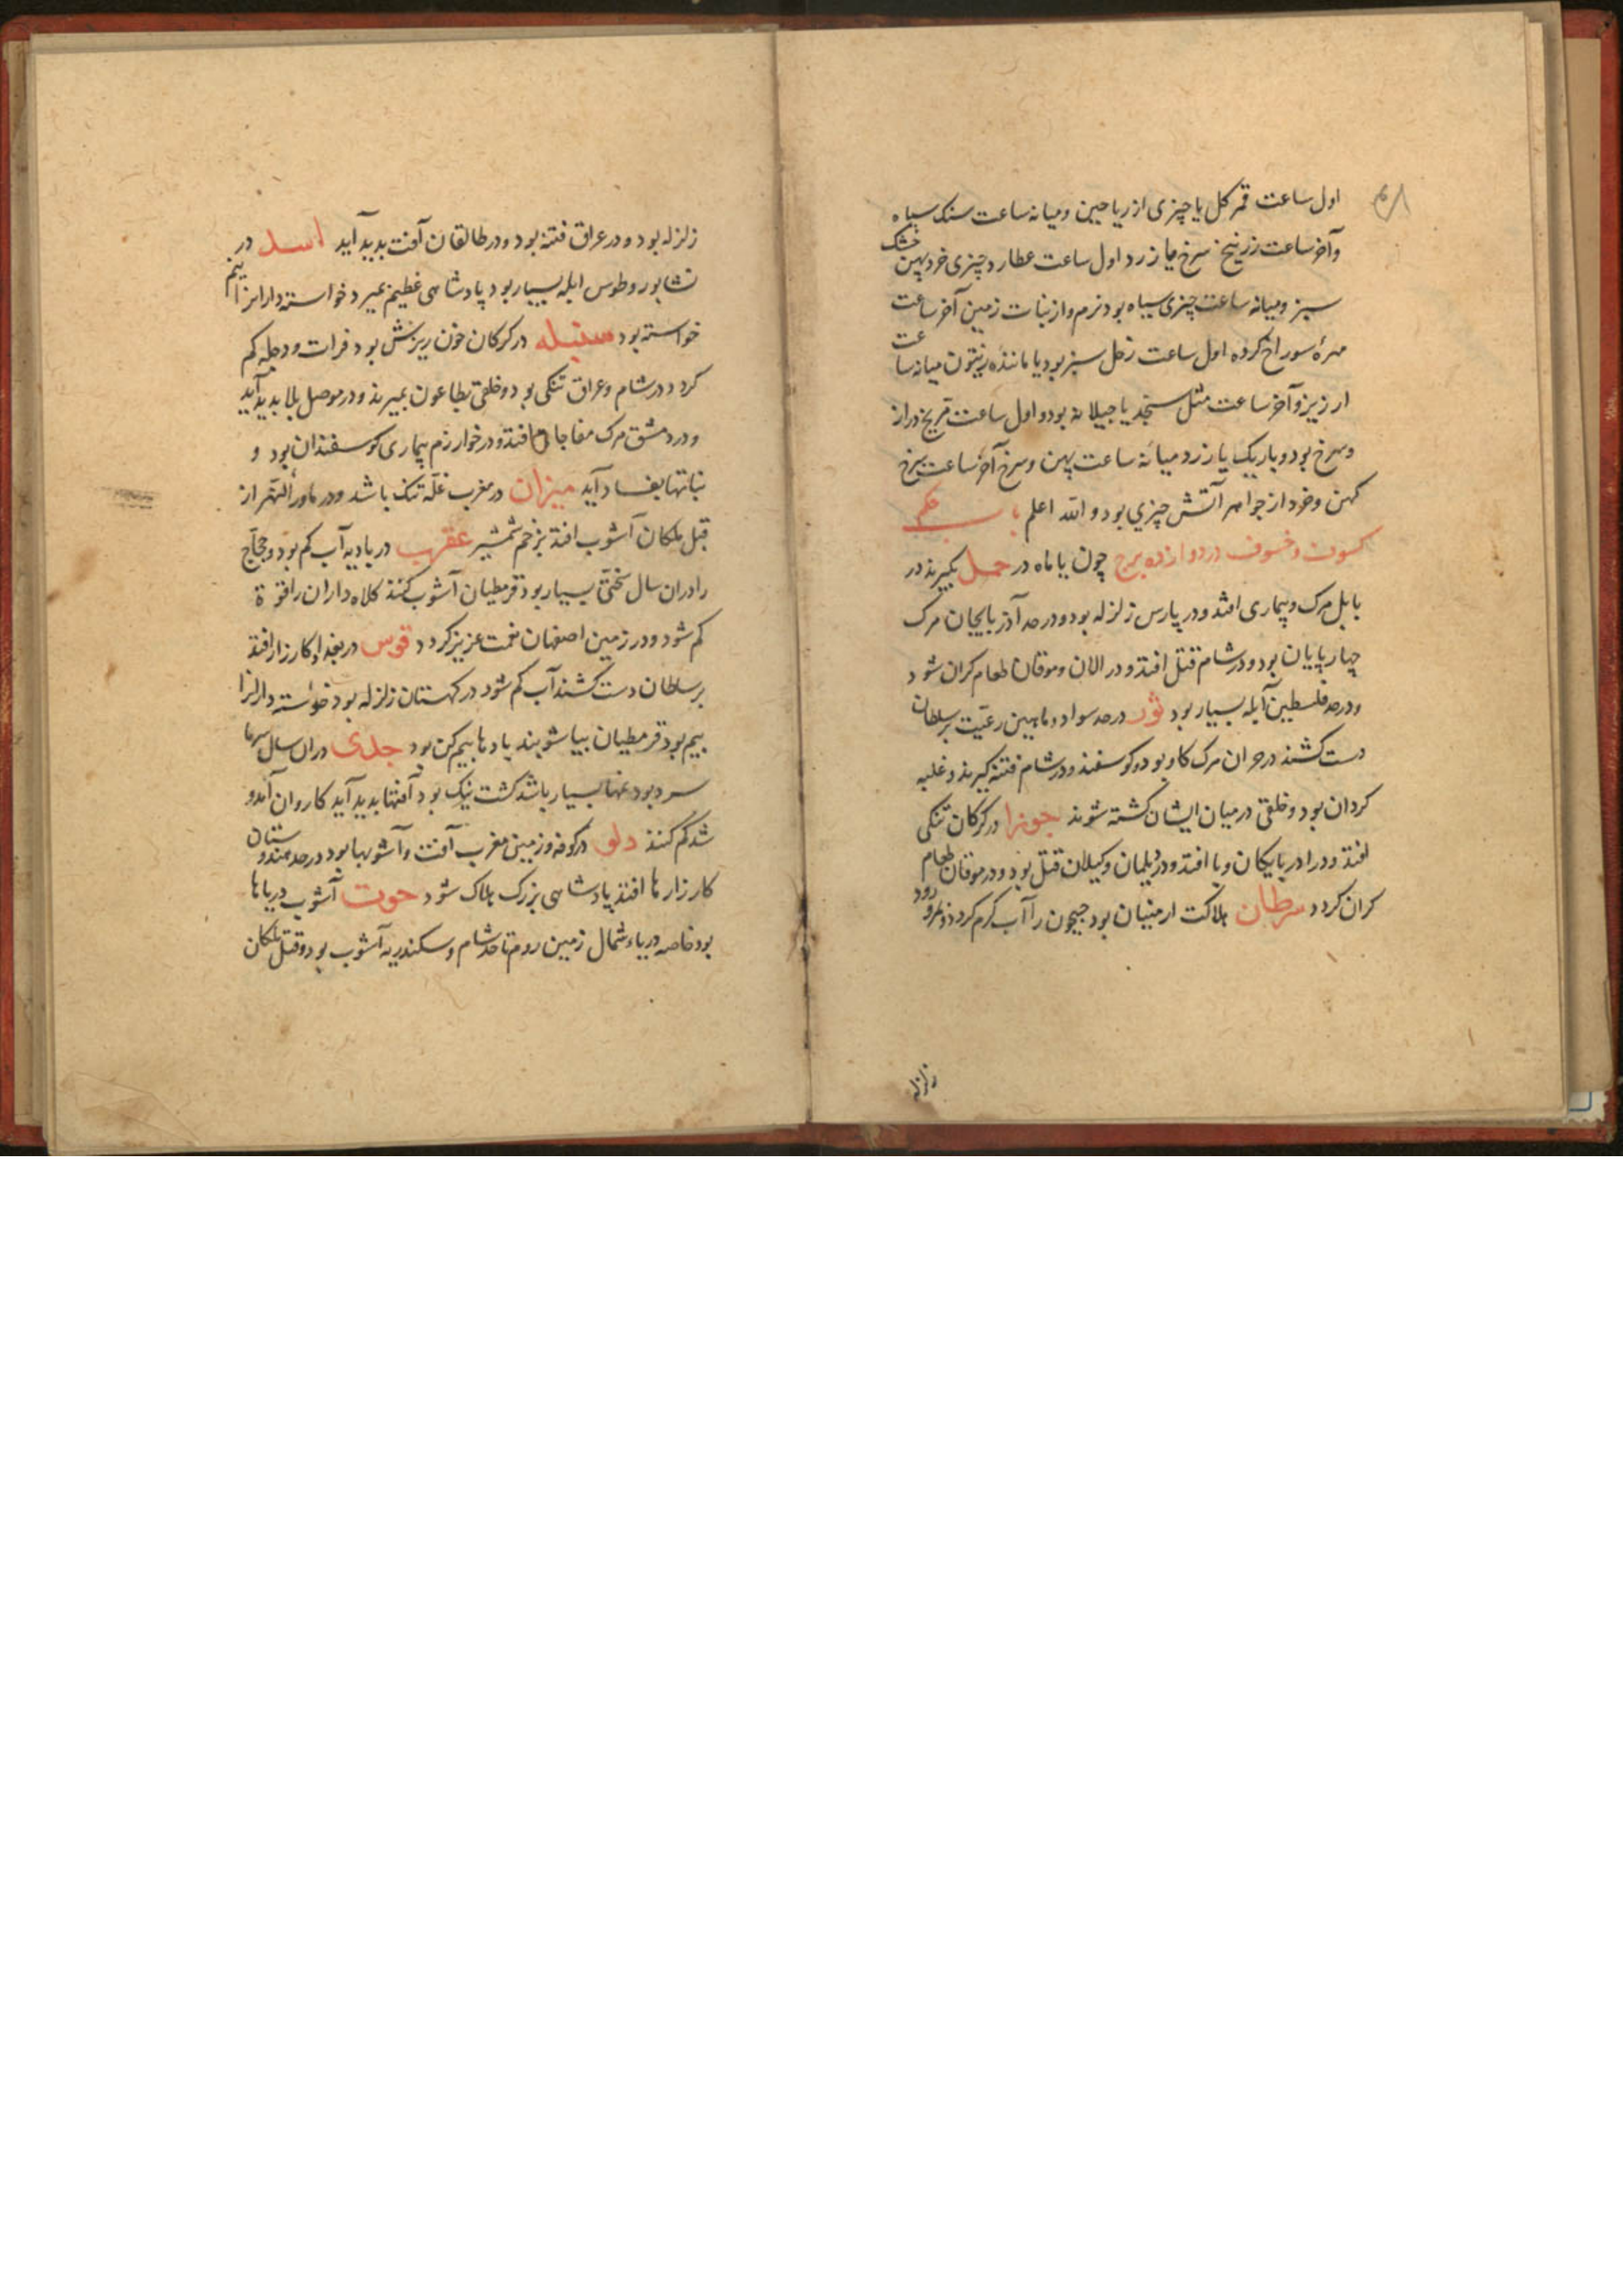 اول ساعت قمر کل یا چیزی از ریاحین و میانه ساعت سنک سیاه
وآخر ساعت زرنیخ سرخ یا زرد اول ساعت عطارد چیزی خرد پهن خشک
سبز ومیانه ساعت چیزی سیاه بود نرم واز نبات زمین آخر ساعت
مهرهٔ سوراخ کرده اول ساعت زحل سبز بود یا مانندهٔ زیتون میانه ساعت
ارزیز وآخر ساعت مثل سنجد یا جیلانه بود و اول ساعت مریخ دراز
وسرخ بود و باریک یا زرد میانه ساعت پهن وسرخ آخر ساعت سرخ
کهن وخرد از جواهر آتش چیزی بود والله اعلم باب حکم
کسوف وخسوف در دوازده برج چون یا ماه در حمل بکیرند در
بابل مرک وبیماری افتد ودر پارس زلزله بود ودر حد آذربایجان مرک
چهارپایان بود ودر شام قتل افتد ودر الان وموقان طعام کران شود
ودر حد فلسطین آبله بسیار بود ثور در حد سواد وماهین رعیت بر سلطان
دست کشند در حران مرک کاو بود وکوسفند ودر شام فتنه کیرند وغلبه
کردان بود وخلقی در میان ایشان کشته شوند جوزا در کرکان تنکی
افتد ودر ادربایکان وبا افتد ودر دیلمان وکیلان قتل بود ودر موقان طعام
کران کردد سرطان هلاکت ارمنیان بود جیحون را آب کرم کردد ومرو رود
زلزله
زلزله بود ودر عراق فتنه بود ودر طالقان آفت بدید آید اسد در
نشابور وطوس ابله بسیار بود پادشاهی عظیم بمیرد خواسته دارانرا بیم
خواسته بود سنبله در کرکان خون ریزش بود فرات ودجله کم
کردد در شام وعراق تنکی بود وخلقی بطاعون بمیرند ودر موصل بلا بدید آید
ودر دمشق مرک مفاجا افتد ودر خوارزم بیماری کوسفندان بود و
نباتها بفساد آید میزان در مغرب غلّه تنک باشد ودر ماورألنهر از
قبل ملکان آشوب افتد بزخم شمشیر عقرب در بادیه آب کم بود وحجاج
را دران سال سختی بسیار بود قرمطیان آشوب کنند کلاه داران را قوّة
کم شود ودر زمین اصفهان نعمت عزیز کردد قوس در بغداد کارزار افتد
بر سلطان دست کشند آب کم شود در کهستان زلزله بود خواسته دارانرا
بیم بود قرمطیان بیاشوبند بادها بیم کن بود جدی دران سال سرما
سرد بود غمها بسیار باشد کشت نیک بود آفتها بدید آید کاروان آمد و
شد کم کنند دلو در کوفه وزمین مغرب آفت وآشوبها بود در حد هندوستان
کارزارها افتد پادشاهی بزرک هلاک شود حوت آشوب دریاها
بود خاصه دریاء شمال زمین روم تا حد شام وسکندریه آشوب بود وقتل ملکان